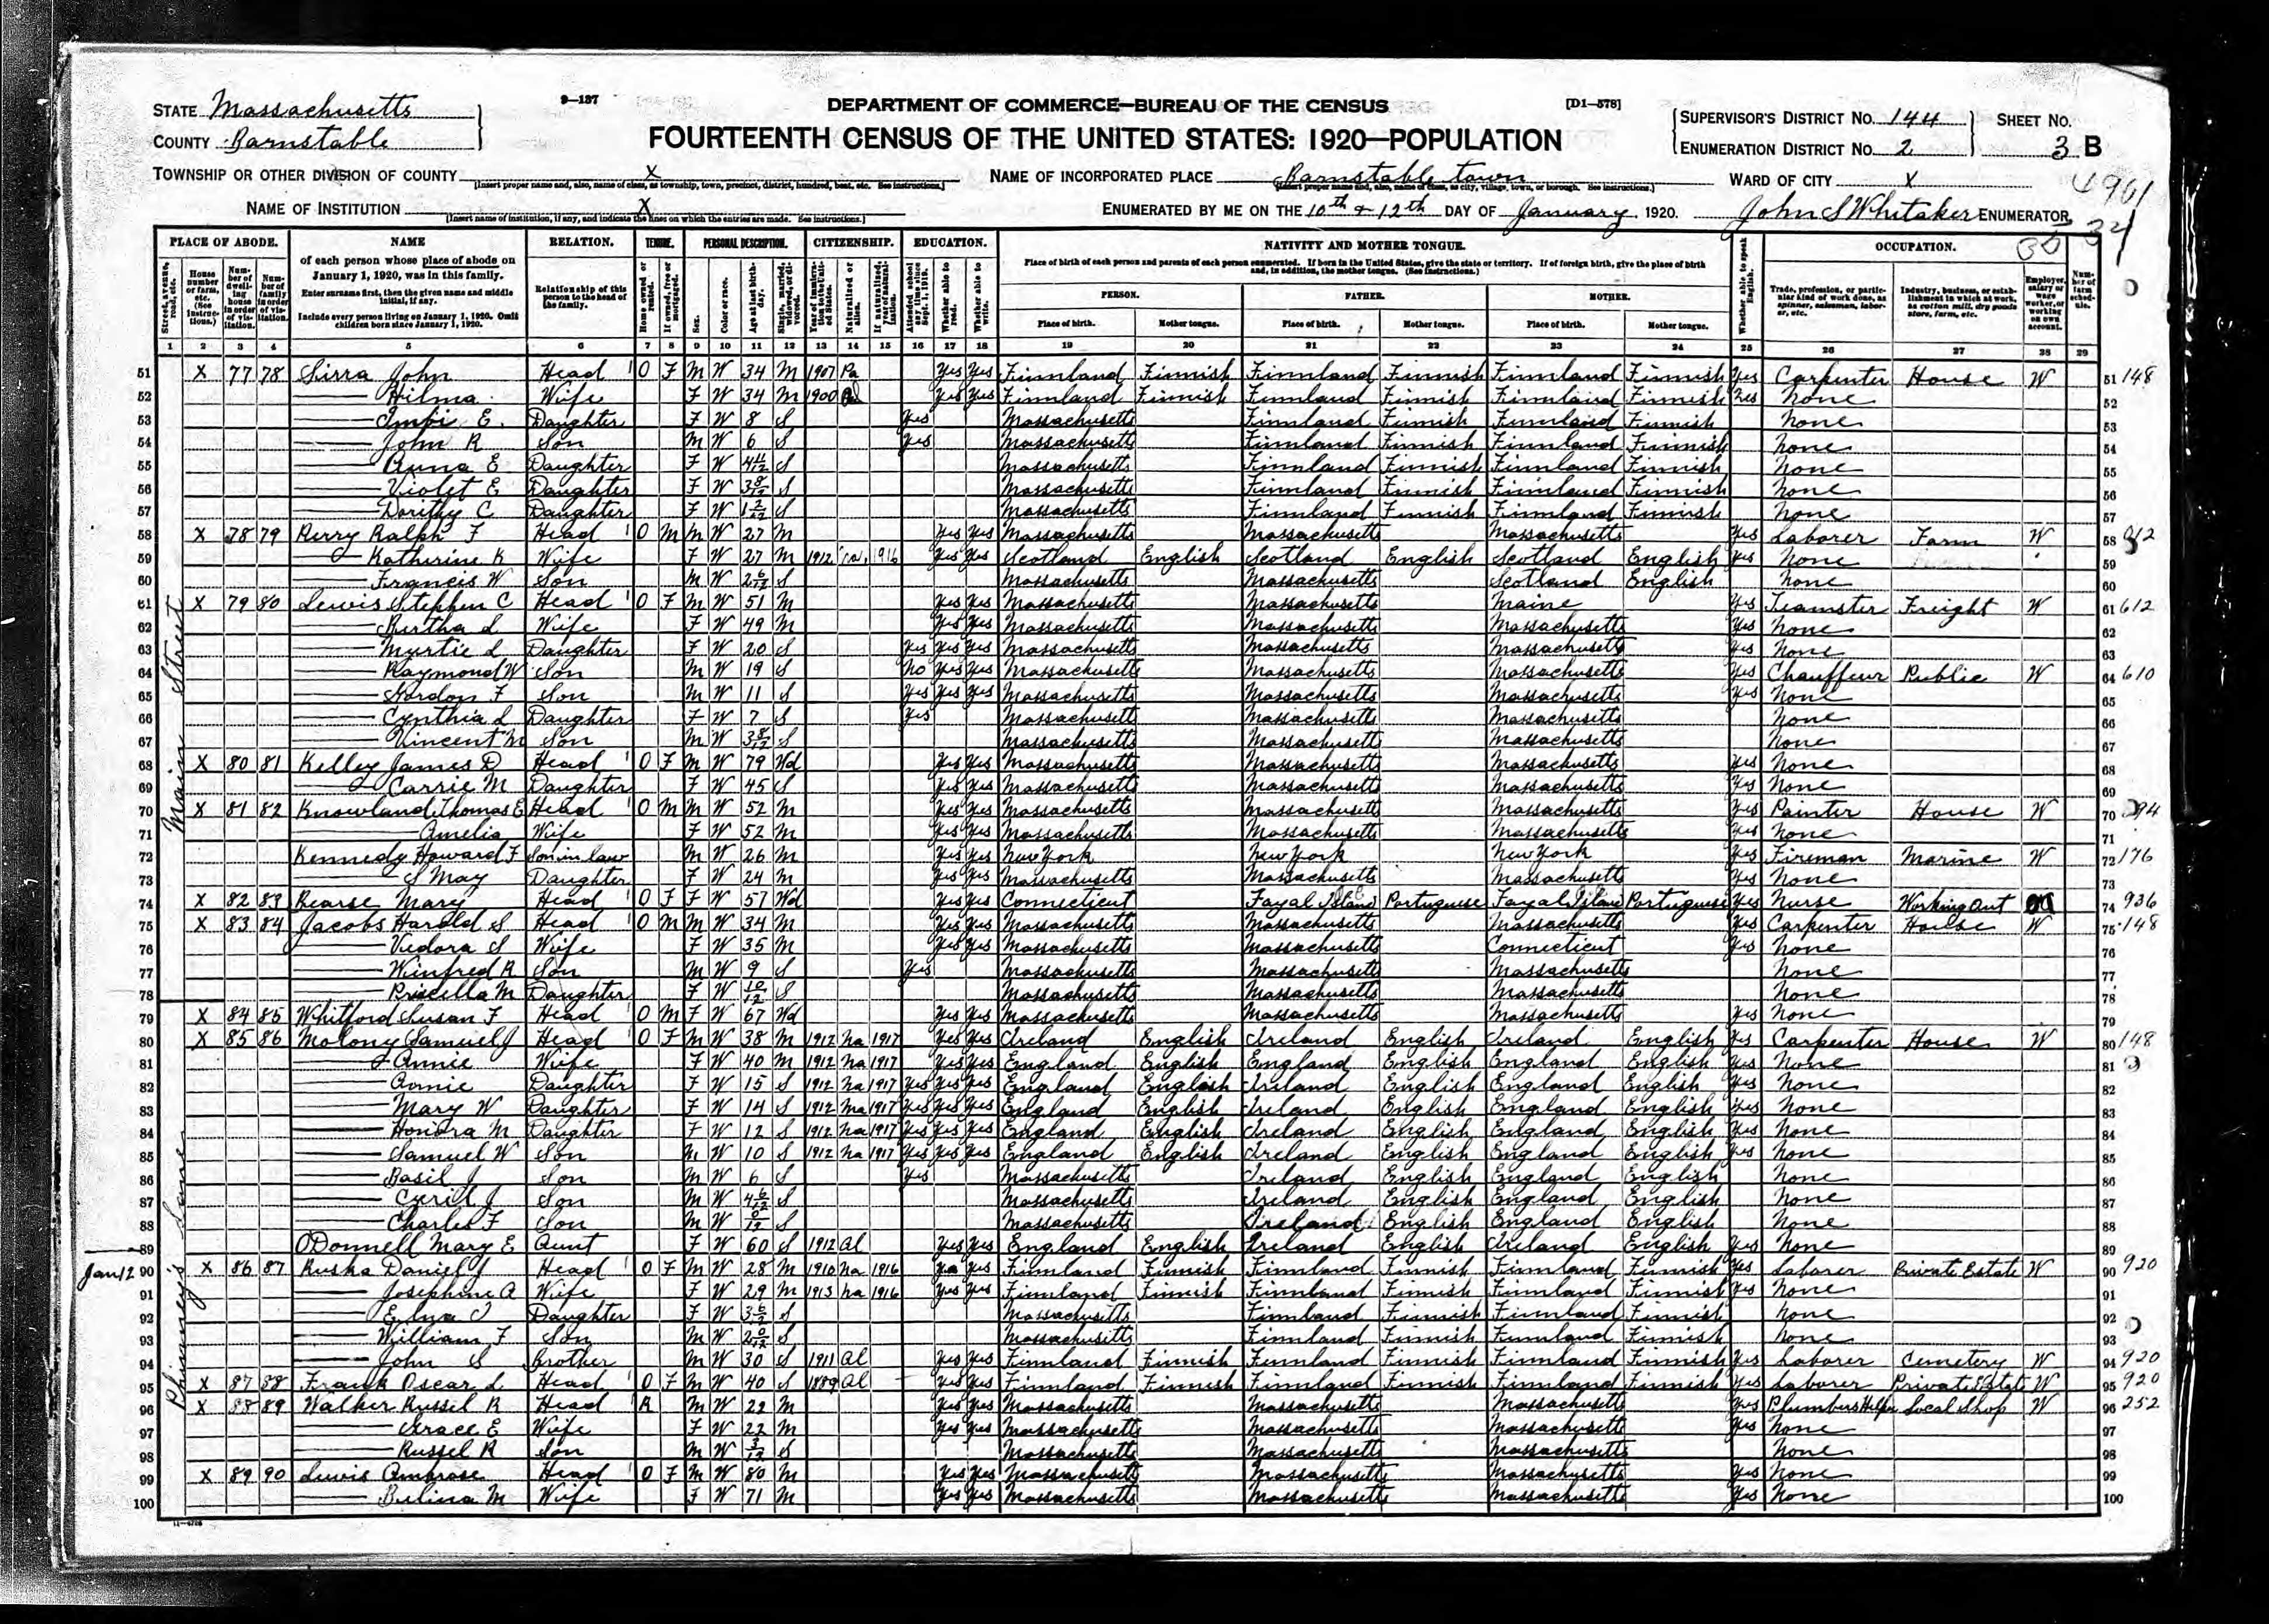 STATE Massachusetts
COUNTY Barnstable
9—137
DEPARTMENT OF COMMERCE—BUREAU OF THE CENSUS
[D1—578]
FOURTEENTH CENSUS OF THE UNITED STATES: 1920—POPULATION
SUPERVISOR'S DISTRICT No. 144
ENUMERATION DISTRICT No. 2
SHEET No. 3 B
TOWNSHIP OR OTHER DIVISION OF COUNTY X
[Insert proper name and, also, name of class, as township, town, precinct, district, hundred, beat, etc. See instructions.]
NAME OF INCORPORATED PLACE Barnstable town
[Insert proper name and, also, name of class, as city, village, town, or borough. See instructions.]
WARD OF CITY X
4961
NAME OF INSTITUTION X
[Insert name of institution, if any, and indicate the lines on which the entries are made. See instructions.]
ENUMERATED BY ME ON THE 10th & 12th DAY OF January, 1920. John S Whitaker ENUMERATOR
PLACE OF ABODE. NAME RELATION. TENURE. PERSONAL DESCRIPTION. CITIZENSHIP. EDUCATION. NATIVITY AND MOTHER TONGUE. OCCUPATION.
of each person whose place of abode on January 1, 1920, was in this family.
Enter surname first, then the given name and middle initial, if any.
Include every person living on January 1, 1920. Omit children born since January 1, 1920.
Relationship of this person to the head of the family.
Place of birth of each person and parents of each person enumerated. If born in the United States, give the state or territory. If of foreign birth, give the place of birth and, in addition, the mother tongue. (See instructions.)
PERSON. FATHER. MOTHER.
Place of birth. Mother tongue. Place of birth. Mother tongue. Place of birth. Mother tongue.
1 2 3 4 5 6 7 8 9 10 11 12 13 14 15 16 17 18 19 20 21 22 23 24 25 26 27 28 29
Main Street
51 X 77 78 Sirra John Head O F M W 34 M 1907 Pa Yes Yes Finnland Finnish Finnland Finnish Finnland Finnish Yes Carpenter House W 51 148
52 Hilma Wife F W 34 M 1900 Yes Yes Finnland Finnish Finnland Finnish Finnland Finnish Yes None 52
53 Impi E. Daughter F W 8 S Yes Massachusetts Finnland Finnish Finnland Finnish None 53
54 John R Son M W 6 S Yes Massachusetts Finnland Finnish Finnland Finnish None 54
55 Daughter F W 4 11/12 S Massachusetts Finnland Finnish Finnland Finnish None 55
56 Violet E Daughter F W 3 8/12 S Massachusetts Finnland Finnish Finnland Finnish None 56
57 Dorithy C Daughter F W 1 2/12 S Massachusetts Finnland Finnish Finnland Finnish None 57
58 X 78 79 Perry Ralph F Head O M M W 27 M Yes Yes Massachusetts Massachusetts Massachusetts Yes Laborer Farm W 58
59 Katherine K Wife F W 27 M 1912 na 1916 Yes Yes Scotland English Scotland English Scotland English Yes None 59
60 Francis W Son M W 2 6/12 S Massachusetts Massachusetts Scotland English None 60
61 X 79 80 Lewis Stephen C Head O F M W 51 M Yes Yes Massachusetts Massachusetts Maine Yes Teamster Freight W 61 612
62 Bertha L Wife F W 49 M Yes Yes Massachusetts Massachusetts Massachusetts Yes None 62
63 Myrtie L Daughter F W 20 S Yes Yes Yes Massachusetts Massachusetts Massachusetts Yes None 63
64 Raymond W Son M W 19 S No Yes Yes Massachusetts Massachusetts Massachusetts Yes Chauffeur Public W 64 610
65 Gordon F Son M W 11 S Yes Yes Yes Massachusetts Massachusetts Massachusetts Yes None 65
66 Cynthia L Daughter F W 7 S Yes Massachusetts Massachusetts Massachusetts None 66
67 Vincent M Son M W 3 8/12 S Massachusetts Massachusetts Massachusetts None 67
68 X 80 81 Kelley James D Head O F M W 79 Wd Yes Yes Massachusetts Massachusetts Massachusetts Yes None 68
69 Carrie M Daughter F W 45 S Yes Yes Massachusetts Massachusetts Massachusetts Yes None 69
70 X 81 82 Knowland Thomas E Head O M M W 52 M Yes Yes Massachusetts Massachusetts Massachusetts Yes Painter House W 70
71 Amelia Wife F W 52 M Yes Yes Massachusetts Massachusetts Massachusetts Yes None 71
72 Kennedy Howard F Son in law M W 26 M Yes Yes New York New York New York Yes Fireman Marine W 72 176
73 S May Daughter F W 24 M Yes Yes Massachusetts Massachusetts Massachusetts Yes None 73
74 X 82 83 Pearse Mary Head O F F W 57 Wd Yes Yes Connecticut Fayal Island Portuguese Fayal Island Portuguese Yes Nurse Working Out 74 936
75 X 83 84 Jacobs Harold S Head O M M W 34 M Yes Yes Massachusetts Massachusetts Massachusetts Yes Carpenter House W 75 148
76 Viedora S Wife F W 35 M Yes Yes Massachusetts Massachusetts Connecticut Yes None 76
77 Winfred R Son M W 9 S Yes Massachusetts Massachusetts Massachusetts None 77
78 Priscilla M Daughter F W 10/12 S Massachusetts Massachusetts Massachusetts None 78
Phinney's Lane
79 X 84 85 Whitford Susan F Head O M F W 67 Wd Yes Yes Massachusetts Massachusetts Massachusetts Yes None 79
80 X 85 86 Molony Samuel J Head O F M W 38 M 1912 Na 1917 Yes Yes Ireland English Ireland English Ireland English Yes Carpenter House W 80 148
81 Annie Wife F W 40 M 1912 Na 1917 Yes Yes England English England English England English Yes None 81
82 Annie Daughter F W 15 S 1912 Na 1917 Yes Yes Yes England English Ireland English England English Yes None 82
83 Mary W Daughter F W 14 S 1912 Na 1917 Yes Yes Yes England English Ireland English England English Yes None 83
84 Honora M Daughter F W 12 S 1912 Na 1917 Yes Yes Yes England English Ireland English England English Yes None 84
85 Samuel W Son M W 10 S 1912 Na 1917 Yes Yes Yes England English Ireland English England English Yes None 85
86 Basil J Son M W 6 S Yes Massachusetts Ireland English England English None 86
87 Cyril J Son M W 4 6/12 S Massachusetts Ireland English England English None 87
88 Charles F Son M W S Massachusetts Ireland English England English None 88
89 O'Donnell Mary E Aunt F W 60 S 1912 Al Yes Yes England English Ireland English Ireland English Yes None 89
Jan 12 90 X 86 87 Ruska Daniel J Head O F M W 28 M 1910 Na 1916 Yes Yes Finnland Finnish Finnland Finnish Finnland Finnish Yes Laborer Private Estate W 90 920
91 Josephine A Wife F W 29 M 1913 Na 1916 Yes Yes Finnland Finnish Finnland Finnish Finnland Finnish Yes None 91
92 Daughter F W 3 6/12 S Massachusetts Finnland Finnish Finnland Finnish None 92
93 William F Son M W 2 0/12 S Massachusetts Finnland Finnish Finnland Finnish None 93
94 John S Brother M W 30 S 1911 Al Yes Yes Finnland Finnish Finnland Finnish Finnland Finnish Yes Laborer Cemetery W 94 920
95 X 87 88 Frank Oscar L Head O F M W 40 S 1889 Al Yes Yes Finnland Finnish Finnland Finnish Finnland Finnish Yes Laborer Private Estate W 95 920
96 X 88 89 Walker Russel R Head R M W 22 M Yes Yes Massachusetts Massachusetts Massachusetts Yes Plumbers Helper Local Shop W 96 252
97 Grace E Wife F W 22 M Yes Yes Massachusetts Massachusetts Massachusetts Yes None 97
98 Russel R Son M W 3/12 S Massachusetts Massachusetts Massachusetts None 98
99 X 89 90 Lewis Ambrose Head O F M W 80 M Yes Yes Massachusetts Massachusetts Massachusetts Yes None 99
100 Belina M Wife F W 71 M Yes Yes Massachusetts Massachusetts Massachusetts Yes None 100